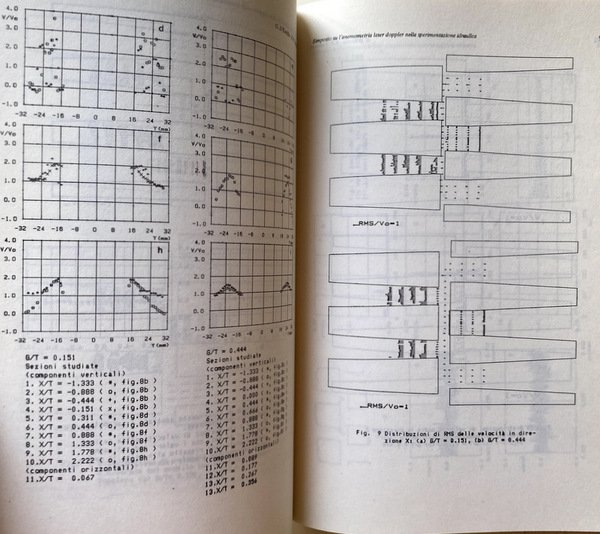 4.0
V/Vo
3.0
2.0
1.0
0.0
-1.0
d
-32 -24 -16 -8 0 8 16 24 32
Y (mm)
4.0
V/Vo
3.0
2.0
1.0
0.0
-1.0
f
-32 -24 -16 -8 0 8 16 24 32
Y (mm)
4.0
V/Vo
3.0
2.0
1.0
0.0
-1.0
h
-32 -24 -16 -8 0 8 16 24 32
Y (mm)
G/T = 0.151
Sezioni studiate
(componenti verticali)
1. X/T = -1.333 ( *, fig.8b )
2. X/T = -0.888 ( o, fig.8b )
3. X/T = -0.444 ( *, fig.8b )
4. X/T = -0.151 ( x, fig.8b )
5. X/T = 0.311 ( *, fig.8d )
6. X/T = 0.444 ( o, fig.8d )
7. X/T = 0.888 ( *, fig.8f )
8. X/T = 1.333 ( o, fig.8f )
9. X/T = 1.778 ( *, fig.8h )
10.X/T = 2.222 ( o, fig.8h )
(componenti orizzontali)
11.X/T = 0.067
4.0
V/Vo
3.0
2.0
1.0
0.0
-1.0
-32 -24 -16 -8 0 8 16
4.0
V/Vo
3.0
2.0
1.0
0.0
-1.0
-32 -24 -16 -8 0 8 16
4.0
V/Vo
3.0
2.0
1.0
0.0
-1.0
-32 -24 -16 -8 0 8 16
G/T = 0.444
Sezioni studiate
(componenti verticali)
1. X/T = -1.333 ( *, fig.8
2. X/T = -0.888
3. X/T = -0.444
4. X/T = 0.000
5. X/T =
6. X/T = 0.666
7. X/T = 0.888
8. X/T = 1.333
9. X/T = 1.778
10.X/T = 2.222
(componenti orizzontali)
11.X/T = 0.089
12.X/T = 0.177
13.X/T = 0.267
13.X/T = 0.356
Simposio su l'anemometria laser doppler nella sperimentazione idraulica
RMS/Vo=1
RMS/Vo=1
Fig. 9 Distribuzioni di RMS delle velocità in dire-
zione X: (a) G/T = 0.151, (b) G/T = 0.444